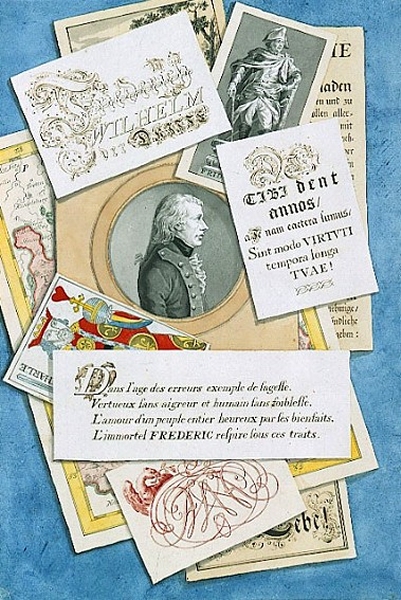 WILHELM
DER DRITTE
IE
aden
en und zu
len aller-
mit
Di
TIBI dent
annos/
a Te nam caetera sumes/
Sint modo VIRTVTI
tempora longa
TVAE!
CHARLE
Dans l'age des erreurs exemple de sagesse.
Vertueux sans aigreur et humain sans foiblesse.
L'amour d'un peuple entier heureux par ses bienfaits.
L'immortel FREDERIC respire sous ces traits.
Lebe!